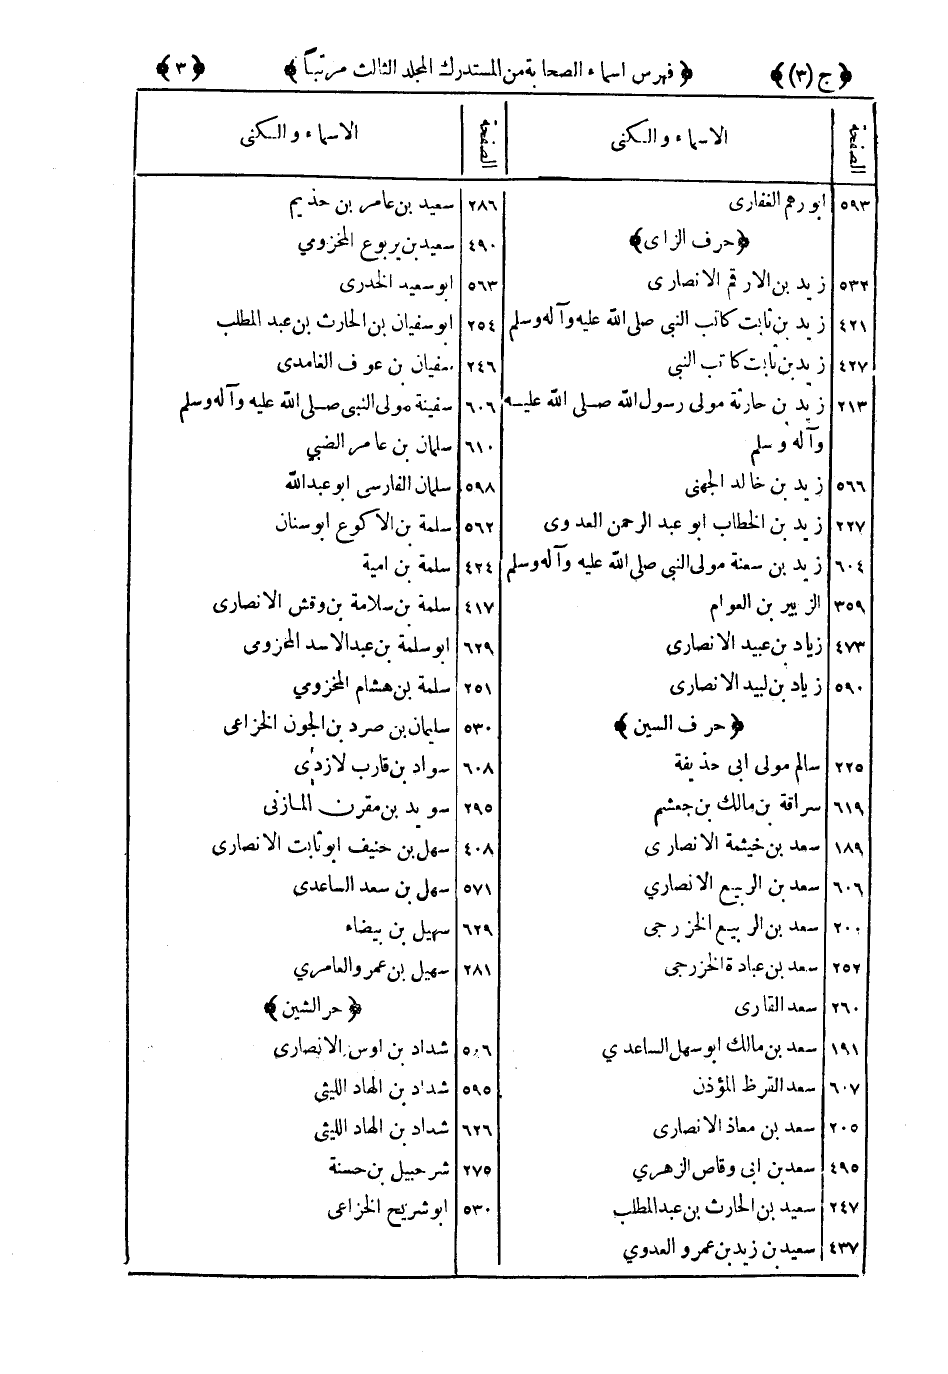 ﴿ ج (٣) ﴾ ﴿ فهرس اسماء الصحابة من المستدرك المجلد الثالث مرتباً ﴾ ﴿ ٣ ﴾
الصفحة الاسماء والكنى
٥٩٣ ابو رهم الغفارى
﴿ حرف الزاى ﴾
٥٣٢ زيد بن الارقم الانصارى
٤٢١ زيد بن ثابت كاتب النبى صلى الله عليه وآله وسلم
٤٢٧ زيد بن ثابت كاتب النبى
٢١٣ زيد بن حارثة مولى رسول الله صلى الله عليه
وآله وسلم
٥٦٦ زيد بن خالد الجهنى
٢٢٧ زيد بن الخطاب ابو عبد الرحمن العدوى
٦٠٤ زيد بن سعنة مولى النبى صلى الله عليه وآله وسلم
٣٥٩ الزبير بن العوام
٤٧٣ زياد بن عبيد الانصارى
٥٩٠ زياد بن لبيد الانصارى
﴿ حرف السين ﴾
٢٢٥ سالم مولى ابى حذيفة
٦١٩ سراقة بن مالك بن جعشم
١٨٩ سعد بن خيثمة الانصارى
٦٠٦ سعد بن الربيع الانصاري
٢٠٠ سعد بن الربيع الخزرجى
٢٥٢ سعد بن عبادة الخزرجى
٢٦٠ سعد القارى
١٩١ سعد بن مالك ابو سهل الساعدي
٦٠٧ سعد القرظ المؤذن
٢٠٥ سعد بن معاذ الانصارى
٤٩٥ سعد بن ابى وقاص الزهري
٢٤٧ سعيد بن الحارث بن عبد المطلب
٤٣٧ سعيد بن زيد بن عمرو العدوي
الصفحة الاسماء والكنى
٢٨٦ سعيد بن عامر بن حذيم
٤٩٠ سعيد بن يربوع المخزومي
٥٦٣ ابو سعيد الخدرى
٢٥٤ ابو سفيان بن الحارث بن عبد المطلب
٢٤٦ سفيان بن عوف الغامدى
٦٠٦ سفينة مولى النبى صلى الله عليه وآله وسلم
٦١٠ سلمان بن عامر الضبي
٥٩٨ سلمان الفارسى ابو عبدالله
٥٦٢ سلمة بن الاكوع ابو سنان
٤٢٤ سلمة بن امية
٤١٧ سلمة بن سلامة بن وقش الانصارى
٦٢٩ ابو سلمة بن عبد الاسد المخزومى
٢٥١ سلمة بن هشام المخزومي
٥٣٠ سليمان بن صرد بن الجون الخزاعى
٦٠٨ سواد بن قارب لازدى
٢٩٥ سويد بن مقرن المازنى
٤٠٨ سهل بن حنيف ابو ثابت الانصارى
٥٧١ سهل بن سعد الساعدى
٦٢٩ سهيل بن بيضاء
٢٨١ سهيل بن عمرو العامري
﴿ حر الشين ﴾
٥٠٦ شداد بن اوس الانصارى
٥٩٥ شداد بن الهاد الليثى
٦٢٦ شداد بن الهاد الليثى
٢٧٥ شرحبيل بن حسنة
٥٣٠ ابو شريح الخزاعى